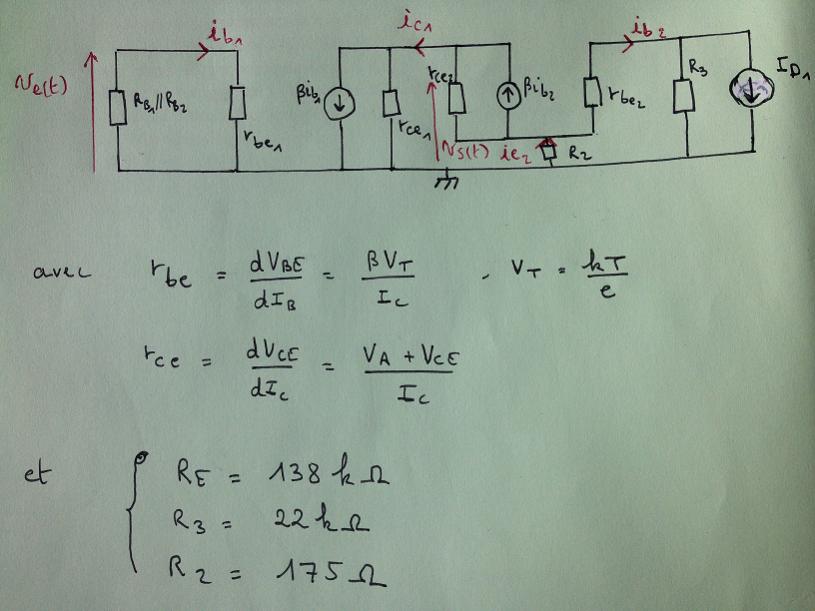 ib₁ ic₁ ib₂
Ve(t) RB₁//RB₂ rbe₁ βib₁ rce₁ rce₂ βib₂ rbe₂ R₃ ID₁
Vs(t) ie₂ R₂
avec rbe = dVBE/dIB = βVT/Ic , VT = kT/e
rce = dVCE/dIc = VA + VCE/Ic
et { RE = 138 kΩ
R₃ = 22 kΩ
R₂ = 175 Ω